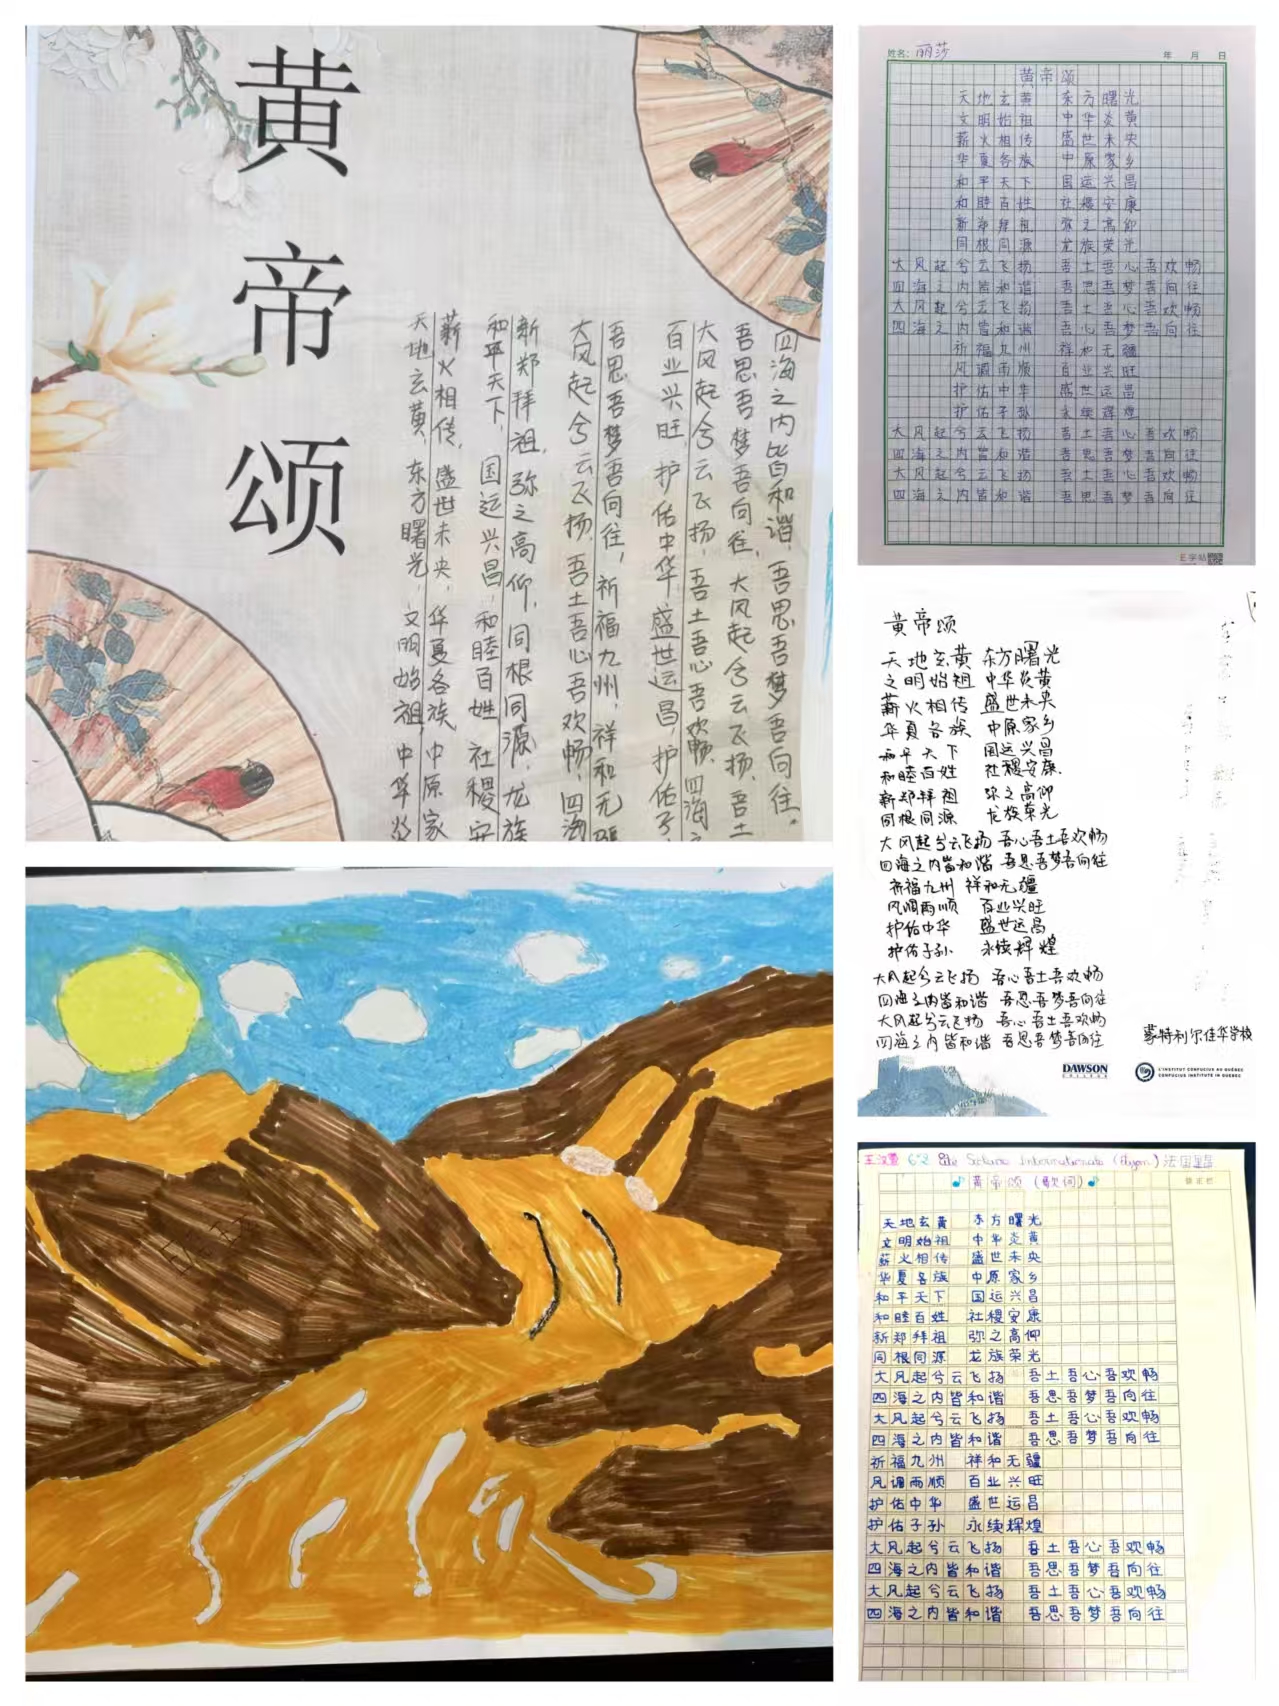 黄帝颂
天地玄黄,东方曙光,文明始祖,中华炎
薪火相传,盛世未央,华夏各族 中原家
和平天下,国运兴昌,和睦百姓 社稷安
新郑拜祖,弥之高仰,同根同源,龙族
大风起兮云飞扬,吾土吾心吾欢畅,四海
吾思吾梦吾向往,祈福九州,祥和无疆
百业兴旺 护佑中华,盛世运昌,护佑子
大风起兮云飞扬,吾土吾心吾欢畅,四海之
吾思吾梦吾向往,大风起兮云飞扬,吾土
四海之内皆和谐,吾思吾梦吾向往。
姓名:丽莎 年 月 日
黄帝颂
天地玄黄 东方曙光
文明始祖 中华炎黄
薪火相传 盛世未央
华夏各族 中原家乡
和平天下 国运兴昌
和睦百姓 社稷安康
新郑拜祖 弥之高仰
同根同源 龙族荣光
大风起兮云飞扬 吾土吾心吾欢畅
四海之内皆和谐 吾思吾梦吾向往
大风起兮云飞扬 吾土吾心吾欢畅
四海之内皆和谐 吾心吾梦吾向往
祈福九州 祥和无疆
风调雨顺 百业兴旺
护佑中华 盛世运昌
护佑子孙 永续辉煌
大风起兮云飞扬 吾土吾心吾欢畅
四海之内皆和谐 吾思吾梦吾向往
大风起兮云飞扬 吾土吾心吾欢畅
四海之内皆和谐 吾思吾梦吾向往
E字帖
黄帝颂
天地玄黄 东方曙光
文明始祖 中华炎黄
薪火相传 盛世未央
华夏各族 中原家乡
和平天下 国运兴昌
和睦百姓 社稷安康.
新郑拜祖 弥之高仰
同根同源 龙族荣光
大风起兮云飞扬 吾心吾土吾欢畅
四海之内皆和谐 吾思吾梦吾向往
祈福九州 祥和无疆
风调雨顺 百业兴旺
护佑中华 盛世运昌
护佑子孙 永续辉煌
大风起兮云飞扬 吾心吾土吾欢畅
四海之内皆和谐 吾思吾梦吾向往
大风起兮云飞扬 吾心吾土吾欢畅
四海之内皆和谐 吾思吾梦吾向往
蒙特利尔佳华学校
DAWSON
COLLEGE
L'INSTITUT CONFUCIUS AU QUÉBEC
CONFUCIUS INSTITUTE IN QUEBEC
王汉 6e2 Cité Scolaire Internationale (Lyon) 法国里昂
黄帝颂(歌词)
天地玄黄 东方曙光
文明始祖 中华炎黄
薪火相传 盛世未央
华夏各族 中原家乡
和平天下 国运兴昌
和睦百姓 社稷安康
新郑拜祖 弥之高仰
同根同源 龙族荣光
大风起兮云飞扬 吾土吾心吾欢畅
四海之内皆和谐 吾思吾梦吾向往
大风起兮云飞扬 吾土吾心吾欢畅
四海之内皆和谐 吾思吾梦吾向往
祈福九州 祥和无疆
风调雨顺 百业兴旺
护佑中华 盛世运昌
护佑子孙 永续辉煌
大风起兮云飞扬 吾土吾心吾欢畅
四海之内皆和谐 吾思吾梦吾向往
大风起兮云飞扬 吾土吾心吾欢畅
四海之内皆和谐 吾思吾梦吾向往